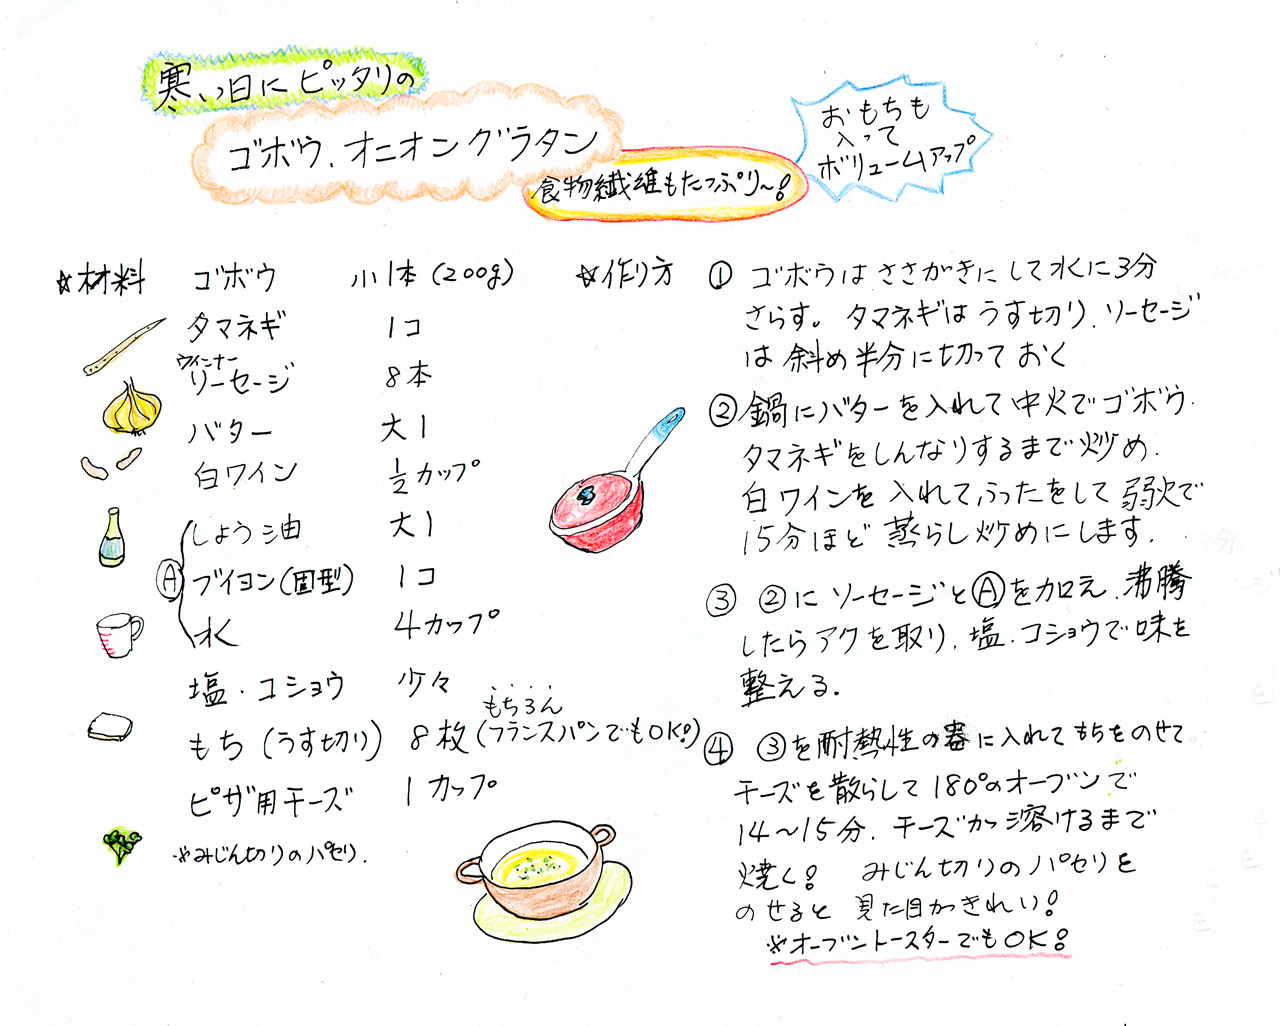 寒い日にピッタリの
ゴボウ、オニオングラタン
食物繊維もたっぷり〜!
おもちも
入って
ボリュームアップ
☆材料
ゴボウ 小1本(200g)
タマネギ 1コ
ウインナー
ソーセージ 8本
バター 大1
白ワイン 1/2カップ
Ⓐ
しょう油 大1
ブイヨン(固型) 1コ
水 4カップ
塩・コショウ 少々
もちろん
もち(うす切り) 8枚(フランスパンでもOK!)
ピザ用チーズ 1カップ
※みじん切りのパセリ.
☆作り方
① ゴボウはささがきにして水に3分
さらす。タマネギはうす切り、ソーセージ
は斜め半分に切っておく
② 鍋にバターを入れて中火でゴボウ、
タマネギをしんなりするまで炒め、
白ワインを入れて、ふったをして弱火で
15分ほど蒸らし炒めにします.
③ ②にソーセージとⒶを加え、沸騰
したらアクを取り、塩・コショウで味を
整える.
④ ③を耐熱性の器に入れてもちをのせて
チーズを散らして180°のオーブンで
14〜15分、チーズが溶けるまで
焼く! みじん切りのパセリを
のせると見た目がきれい!
※オーブントースターでもOK!